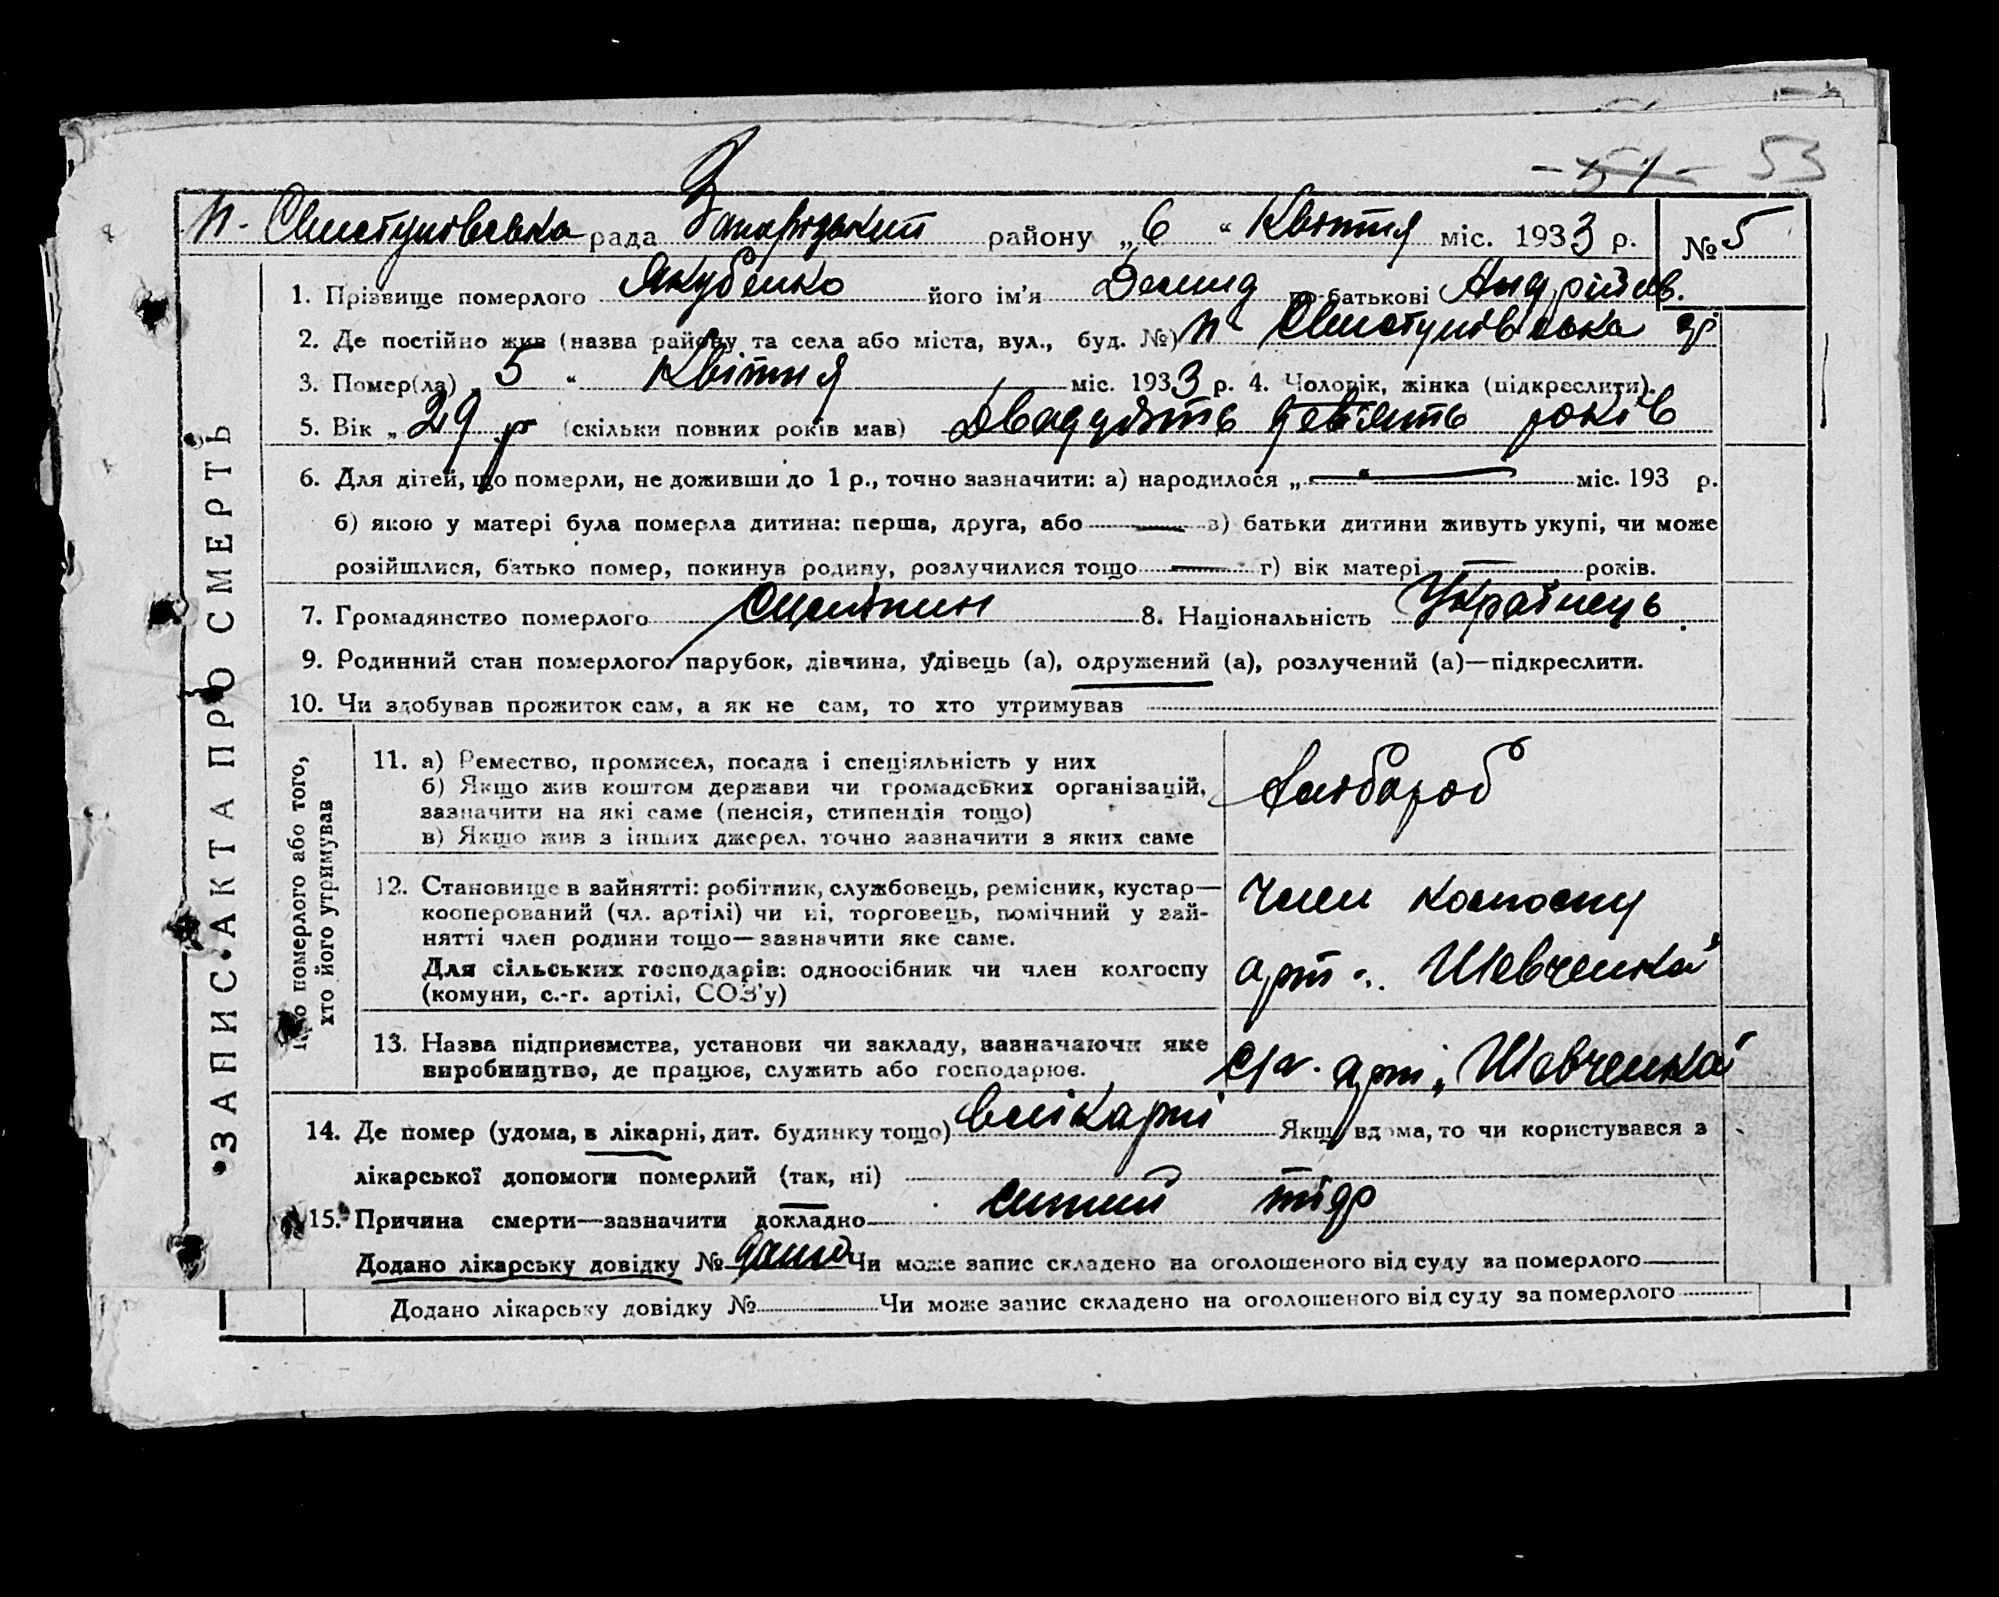 - 51 - 53
п. Свистунівська рада Запорізький району „6 “ Квітня міс. 1933 р. № 5
1. Прізвище померлого Якубенко його ім'я Демид по батькові Андрійов.
2. Де постійно жив (назва району та села або міста, вул., буд. №) п Свистунівська
3. Помер(ла) „ 5 “ Квітня міс. 1933 р. 4. Чоловік, жінка (підкреслити).
5. Вік „ 29 р (скільки повних років мав) Двадцять девʼять років
6. Для дітей, що померли, не доживши до 1 р., точно зазначити: а) народилося „ — “ — міс. 193 р.
б) якою у матері була померла дитина: перша, друга, або — в) батьки дитини живуть укупі, чи може
розійшлися, батько помер, покинув родину, розлучилися тощо — г) вік матері — років.
7. Громадянство померлого 8. Національність Українець.
9. Родинний стан померлого: парубок, дівчина, удівець (а), одружений (а), розлучений (а)—підкреслити.
10. Чи здобував прожиток сам, а як не сам, то хто утримував
ЗАПИС АКТА ПРО СМЕРТЬ
Про померлого або того,
хто його утримував
11. а) Ремество, промисел, посада і спеціяльність у них
б) Якщо жив коштом держави чи громадських організацій,
зазначити на які саме (пенсія, стипендія тощо)
в) Якщо жив з інших джерел, точно зазначити з яких саме
хлібороб
12. Становище в зайнятті: робітник, службовець, ремісник, кустар—
кооперований (чл. артілі) чи ні, торговець, помічний у зай-
нятті член родини тощо—зазначити яке саме.
Для сільських господарів: одноосібник чи член колгоспу
(комуни, с.-г. артілі, СОЗ'у)
член колгоспу
арт. „Шевченка"
13. Назва підприємства, установи чи закладу, зазначаючи яке
виробництво, де працює, служить або господарює.
с/г. арт. „Шевченка"
14. Де помер (удома, в лікарні, дит. будинку тощо) влікарні Якщо вдома, то чи користувався з
лікарської допомоги померлий (так, ні)
15. Причина смерти—зазначити докладно
Додано лікарську довідку № Чи може запис складено на оголошеного від суду за померлого
Додано лікарську довідку № Чи може запис складено на оголошеного від суду за померлого